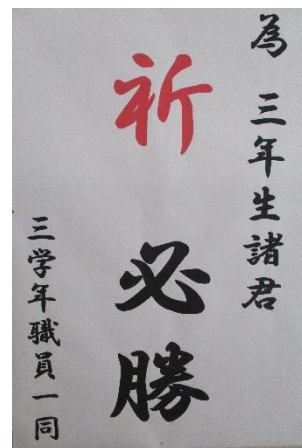 為 三年生諸君
祈 必勝
三学年職員一同